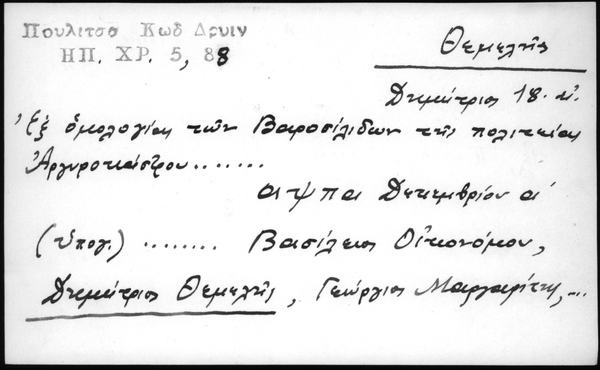 Πουλιτσα Κωδ Δρυιν
ΗΠ. ΧΡ. 5, 88
Θεμελής
Δημήτριος 18. αἰ.
Ἐξ ὁμολογίας τῶν Βαροσιλιδων τῆς πολιτείας
Ἀργυροκάστρου .......
αψπα Δεκεμβρίου α΄
(ὑπογ.) ........ Βασίλειος Οἰκονόμου,
Δημήτριος Θεμελής, Γεώργιος Μαργαρίτης, ...